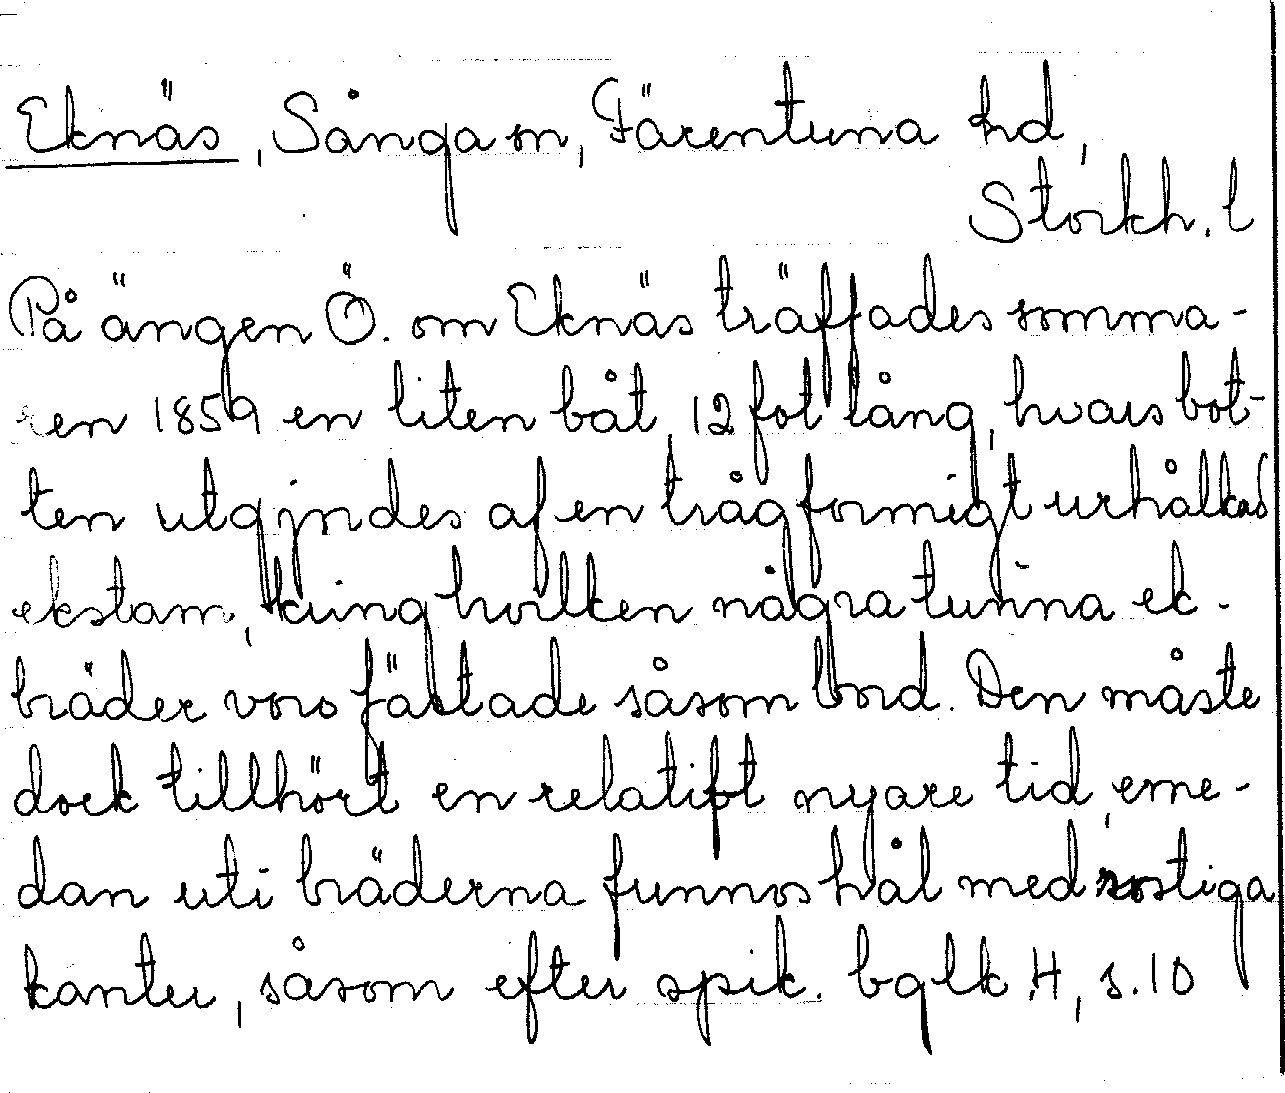 Eknäs, Sånga sn, Färentuna hd,
Stockh. l
På ängen Ö. om Eknäs träffades somma-
ren 1859 en liten båt, 12 fot lång, hvars bot-
ten utgjordes af en trågformigt urhålkad
ekstam, kring hvilken några tunna ek-
bräder voro fästade såsom bord. Den måste
dock tillhört en relatift nyare tid, eme-
dan uti bräderna funnos hål med rostiga
kanter, såsom efter spik. bglk. H, s. 10